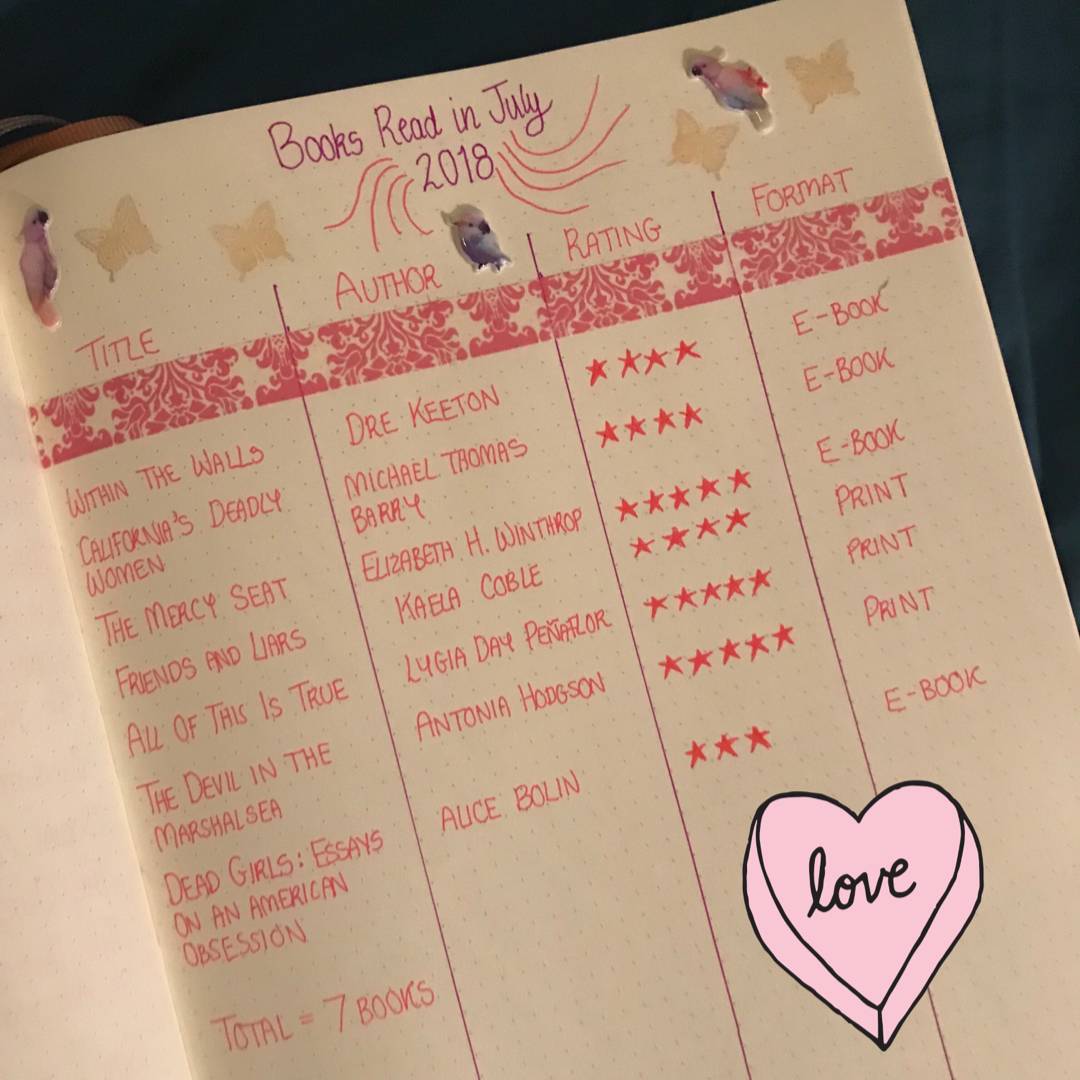 Books Read in July
2018
TITLE AUTHOR RATING FORMAT
WITHIN THE WALLS DRE KEETON ★★★★ E-BOOK
CALIFORNIA'S DEADLY MICHAEL THOMAS ★★★★ E-BOOK
WOMEN BARRY
THE MERCY SEAT ELIZABETH H. WINTHROP ★★★★★ E-BOOK
FRIENDS AND LIARS KAELA COBLE ★★★★ PRINT
ALL OF THIS IS TRUE LYGIA DAY PEÑAFLOR ★★★★★ PRINT
THE DEVIL IN THE ANTONIA HODGSON ★★★★★ PRINT
MARSHALSEA
DEAD GIRLS: ESSAYS ALICE BOLIN ★★★ E-BOOK
ON AN AMERICAN
OBSESSION
TOTAL = 7 BOOKS
love